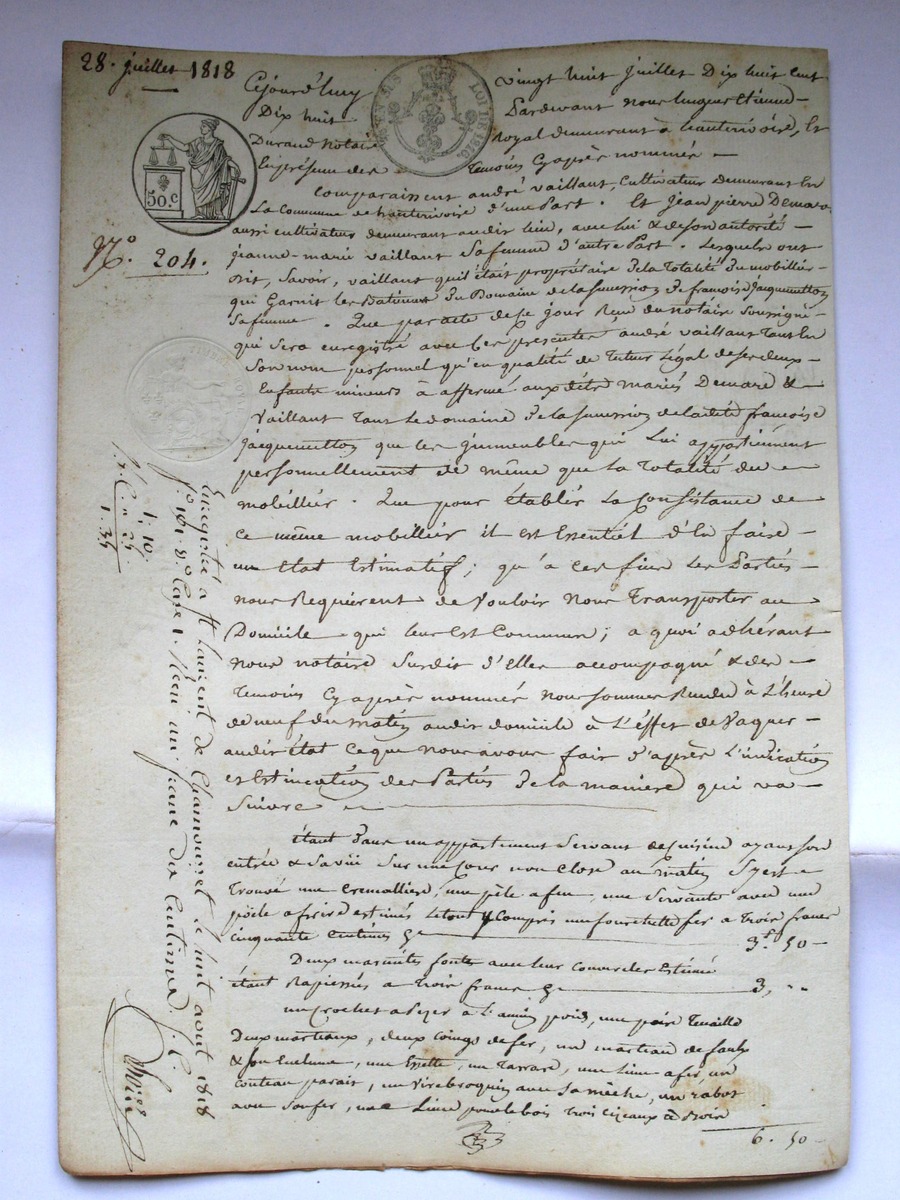 28. juillet 1818
Cejourd'huy vingt huit juillet Dix huit cent
Dix huit Pardevant nous hugues Etienne
Durand Notaire Royal demeurant à hauterivoire, Et
En présence des Temoins Cy après nommés
50.c
LOI DE 1816.
Comparaissent andré vaillant, Cultivateur Demeurant En
La Commune de hauterivoire d'une Part. Et Jean pierre Demare
aussi cultivateur demeurant audit lieu, avec lui & de son autorité
jeanne marie vaillant Sa femme d'autre Part. Lesquels ont
Dit, Savoir, vaillant qu'il était propriétaire de la Totalité du mobillier
N.o 204.
qui Garnit les Batiments du Domaine de la succession de francoise jacquemetton
Sa femme. Que par acte de ce jour Recu du notaire Soussigné
qui Sera enregistré avec les presentes andré vaillant Tant En
Son nom personnel qu'en qualité de Tuteur Légal de ses deux
Enfants mineurs à affermé aux dits mariés Demare &
Vaillant Tant le domaine de la succession de ladite francoise
jacquemetton que les jmmeubles qui Lui appartiennent
personnellement de même que la Totalité du
mobillier. Que pour établir La Consistance de
Ce même mobillier il est Essentiel d'En faire
un Etat Estimatif; qu'à ces fins Les Parties
nous Requièrent de Vouloir Nous Transporter au
Domicile qui leur Est Commun; a quoi adhérant
Nous notaire Susdit d'Elles accompagné & des
Temoins Cy après nommés Nous sommes Rendu à L'heure
de neuf du matin audit domicile à L'effet de Vaquer
audit état Ce que nous avons fait d'après L'indication
et Estimation des Parties de la maniere qui va
Suivre
étant Dans un appartement Servant de Cuisine ayant son
entrée & Savüe Sur une Cour non Close au matin S'y est
Trouvé une Cremalliere, une pèle a feu, une Servante avec une
pöele a frire estimés Le tout y Compris une fourchette fer a Trois francs
Cinquante Centimes Cy 3.f 50
Deux marmites fonte avec leur Couvercles Estimés
étant Rapiessés a Trois francs Cy 3, "
un Crochet a Pezer a L'ancien poids, une paire Tenaille
Deux marteaux, deux Coings de fer, un marteau de faulx
& Son Enclume, une Essette, un Tarrare, une Lime a fer, un
Couteau parair, un Virebroquin avec Sa mèche, un rabot
avec Son fer, une Lime pour le bois Trois Cizeaux à Froid
6. 50
Enregistré a St Laurent de Chamousset le huit aout 1818
f.o 161 v.o Case 1. Recu un franc dix Centimes.
1. 10
1. 35